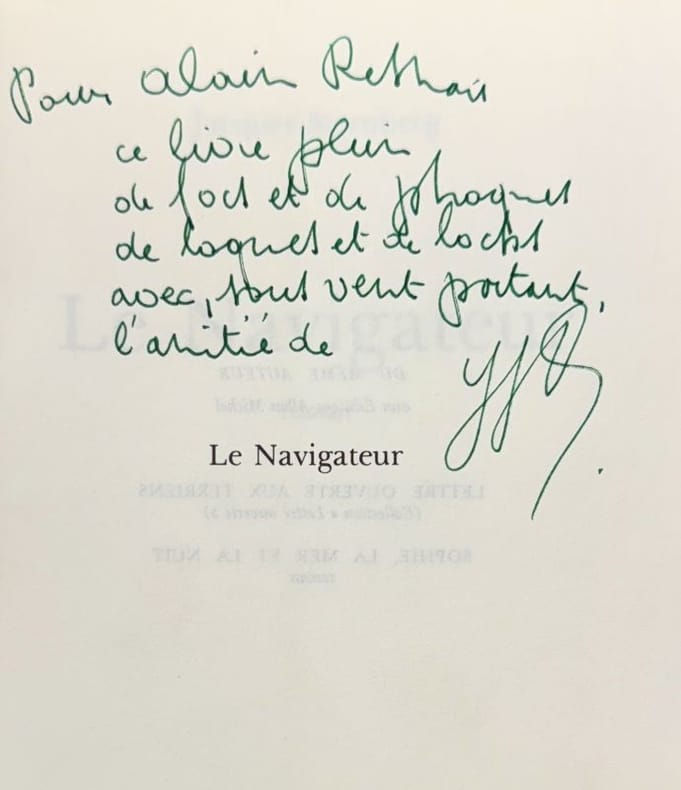 Pour Alain Resnais
ce livre plein
de focs et de phoques
de loques et de lochs
avec, tout vent portant,
l'amitié de
Le Navigateur